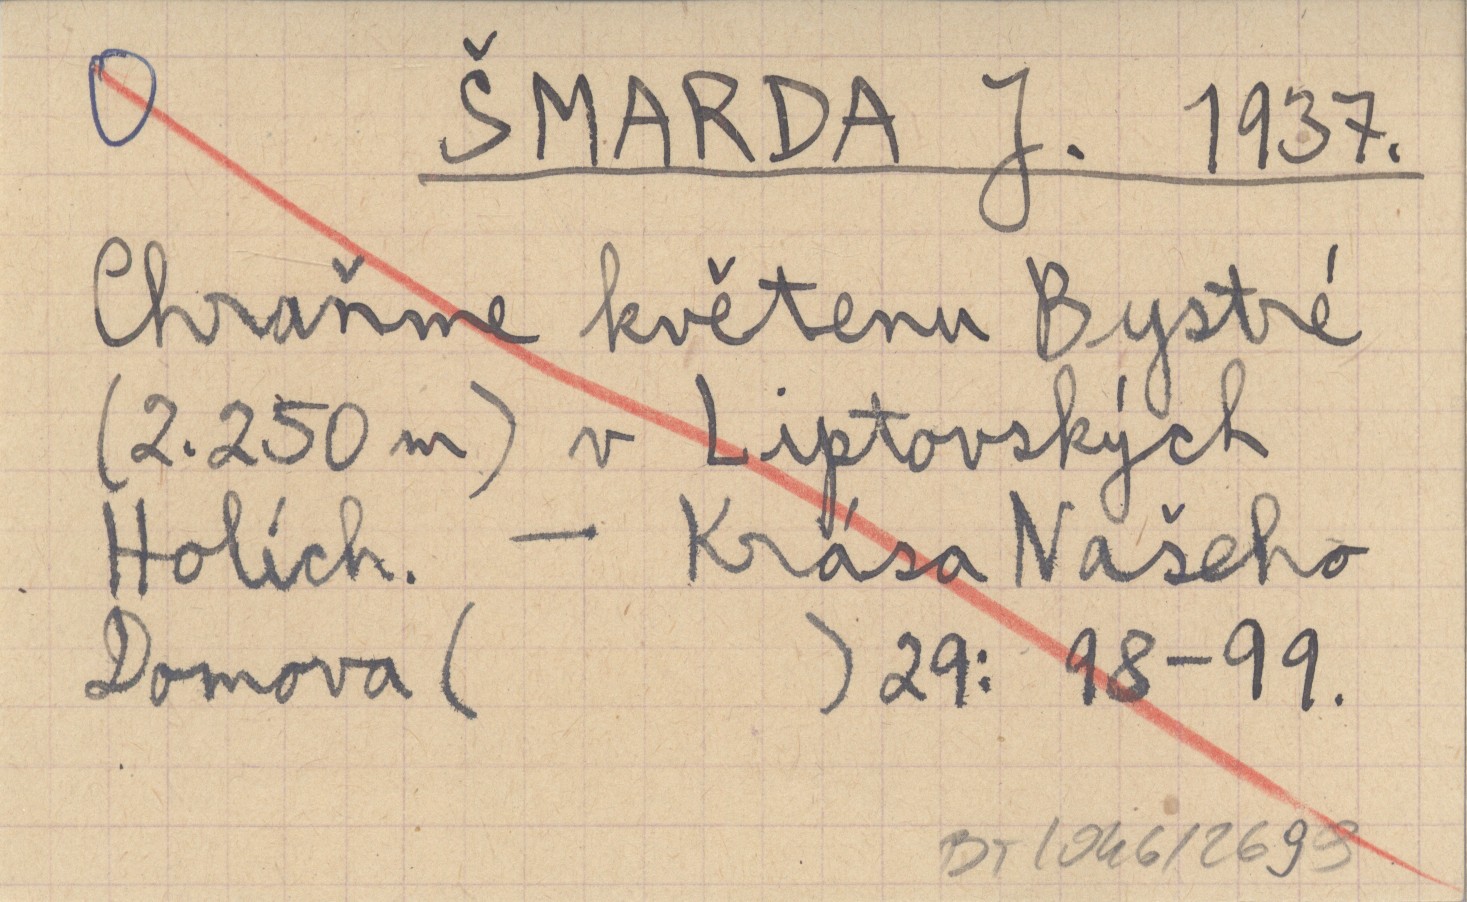 ŠMARDA J. 1937.
Chraňme květenu Bystré
(2.250 m) v Liptovských
Holích. — Krása Našeho
Domova ( ) 29: 98-99.